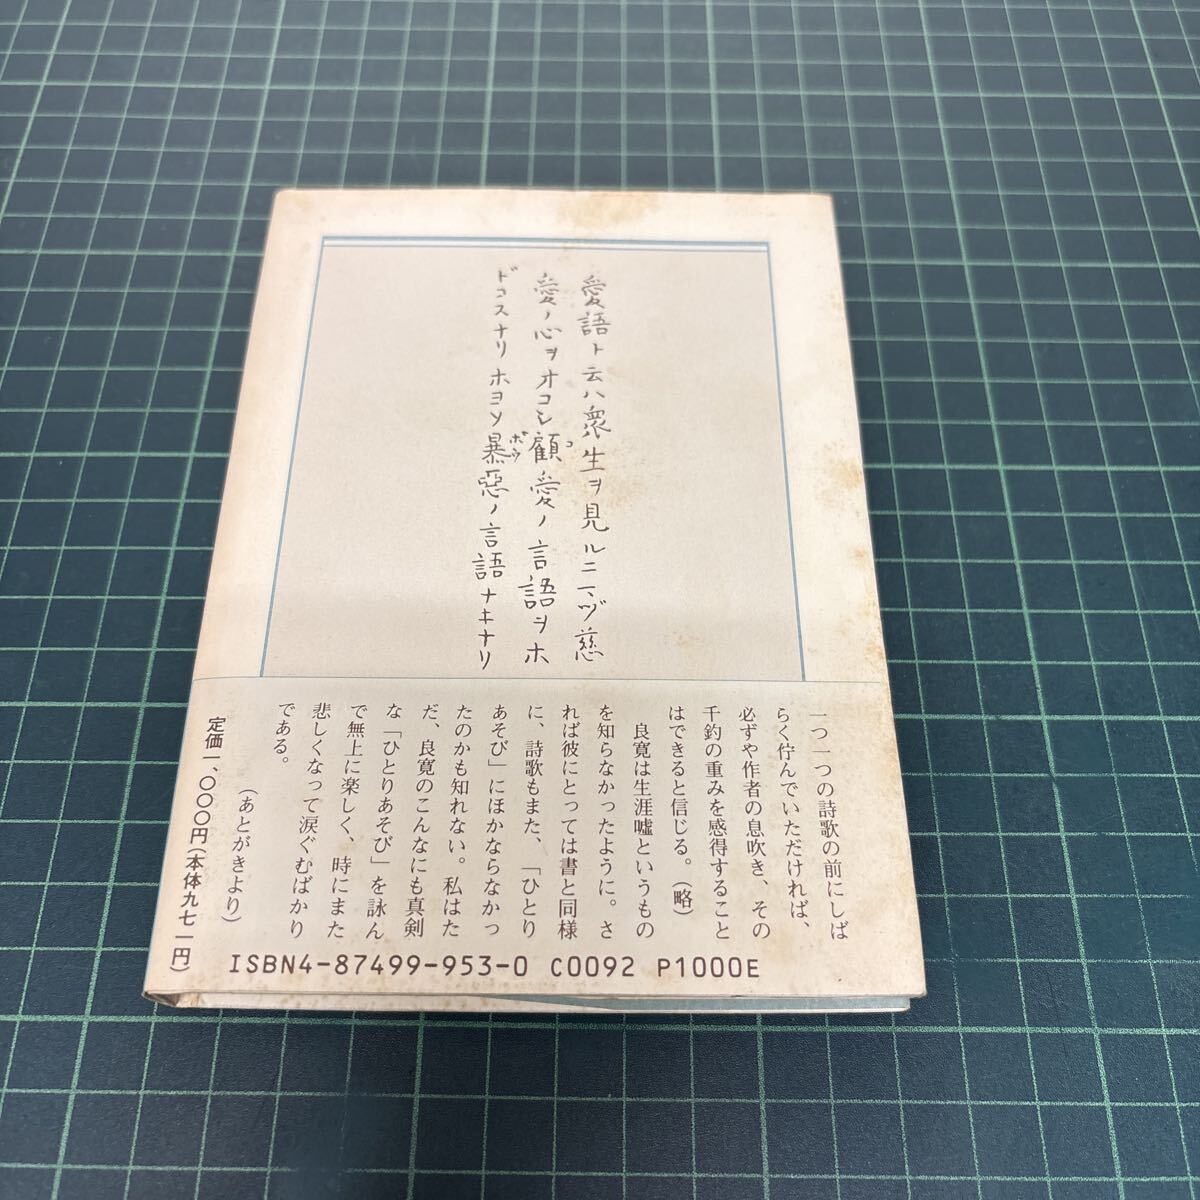 愛語ト云ハ衆生ヲ見ルニマヅ慈
愛ノ心ヲオコシ顧愛ノ言語ヲホ
コ
ドコスナリホヨソ暴惡ノ言語ナキナリ
ボウ
一つ一つの詩歌の前にしば
らく佇んでいただければ、
必ずや作者の息吹き、その
千釣の重みを感得すること
はできると信じる。(略)
良寛は生涯嘘というもの
を知らなかったように。さ
れば彼にとっては書と同様
に、詩歌もまた、「ひとり
あそび」にほかならなかっ
たのかも知れない。私はた
だ、良寛のこんなにも真剣
な「ひとりあそび」を詠ん
で無上に楽しく、時にまた
悲しくなって涙ぐむばかり
である。
(あとがきより)
定価一、〇〇〇円(本体九七一円)
ISBN4-87499-953-0 C0092 P1000E